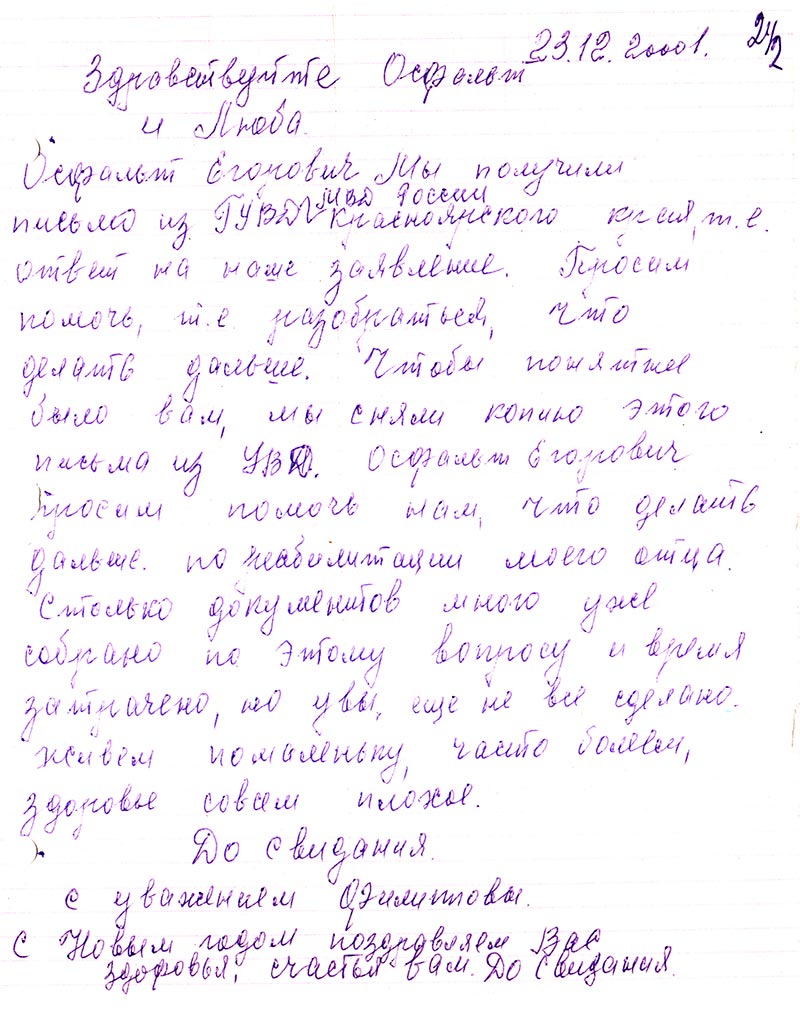 24/2
23.12.2000г.
Здравствуйте Осфальт
и Люба.
Осфальт Егорович Мы получили
письмо из ГУВД МВД России Красноярского края, т.е.
ответ на наше заявление. Просим
помочь, т.е. разобраться, что
делать дальше. Чтобы понятнее
было вам, мы сняли копию этого
письма из УВД. Осфальт Егорович
просим помочь нам, что делать
дальше. по реабилитации моего отца.
Столько документов много уже
собрано по этому вопросу и время
затрачено, но увы, еще не все сделано.
живем помаленьку, часто болеем,
здоровье совсем плохое.
До свидания.
с уважением Филипповы.
С Новым годом поздравляем Вас
здоровья, счастья вам. До свидания.